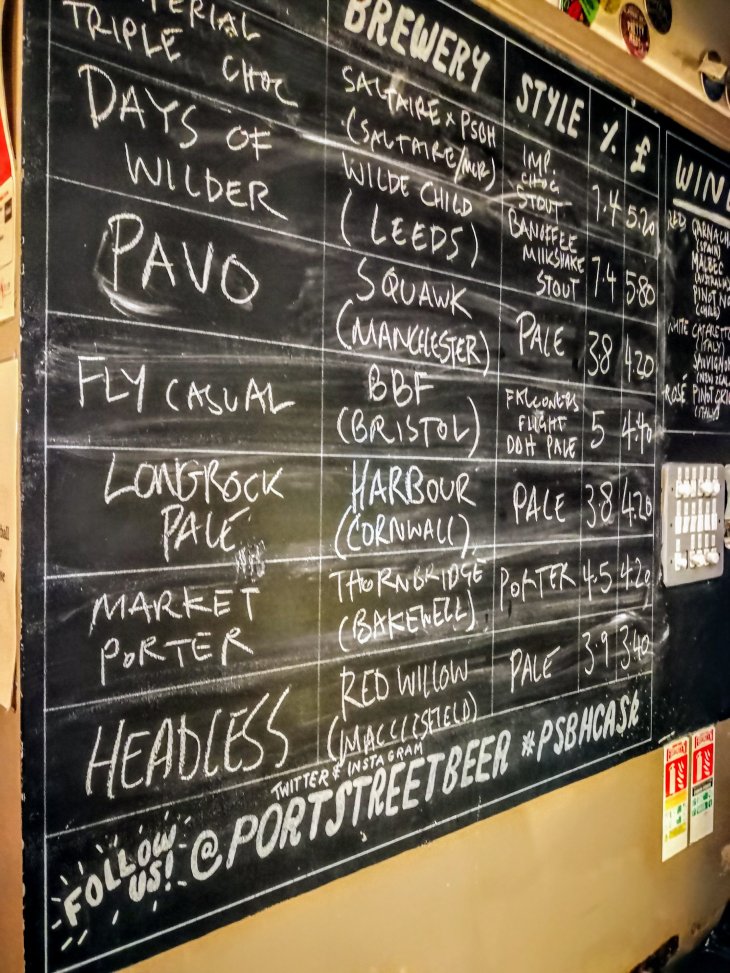 TRIPLE CHOC
BREWERY
STYLE
%
£
SALTAIRE X PSBH
(SALTAIRE/MCR)
IMP.
CHOC
STOUT
7.4
5.20
DAYS OF
WILDER
WILDE CHILD
(LEEDS)
BANOFFEE
MILKSHAKE
STOUT
7.4
5.80
PAVO
SQUAWK
(MANCHESTER)
PALE
3.8
4.20
FLY CASUAL
BBF
(BRISTOL)
FALCONERS
FLIGHT
DDH PALE
5
4.40
LONGROCK
PALE
HARBOUR
(CORNWALL)
PALE
3.8
4.20
MARKET
PORTER
THORNBRIDGE
(BAKEWELL)
PORTER
4.5
4.20
HEADLESS
RED WILLOW
(MACCLESFIELD)
PALE
3.9
3.40
FOLLOW
US!
TWITTER & INSTAGRAM
@PORTSTREETBEER #PSBHCASK
MALBEC
(ITALY)
ROSÉ
(ITALY)